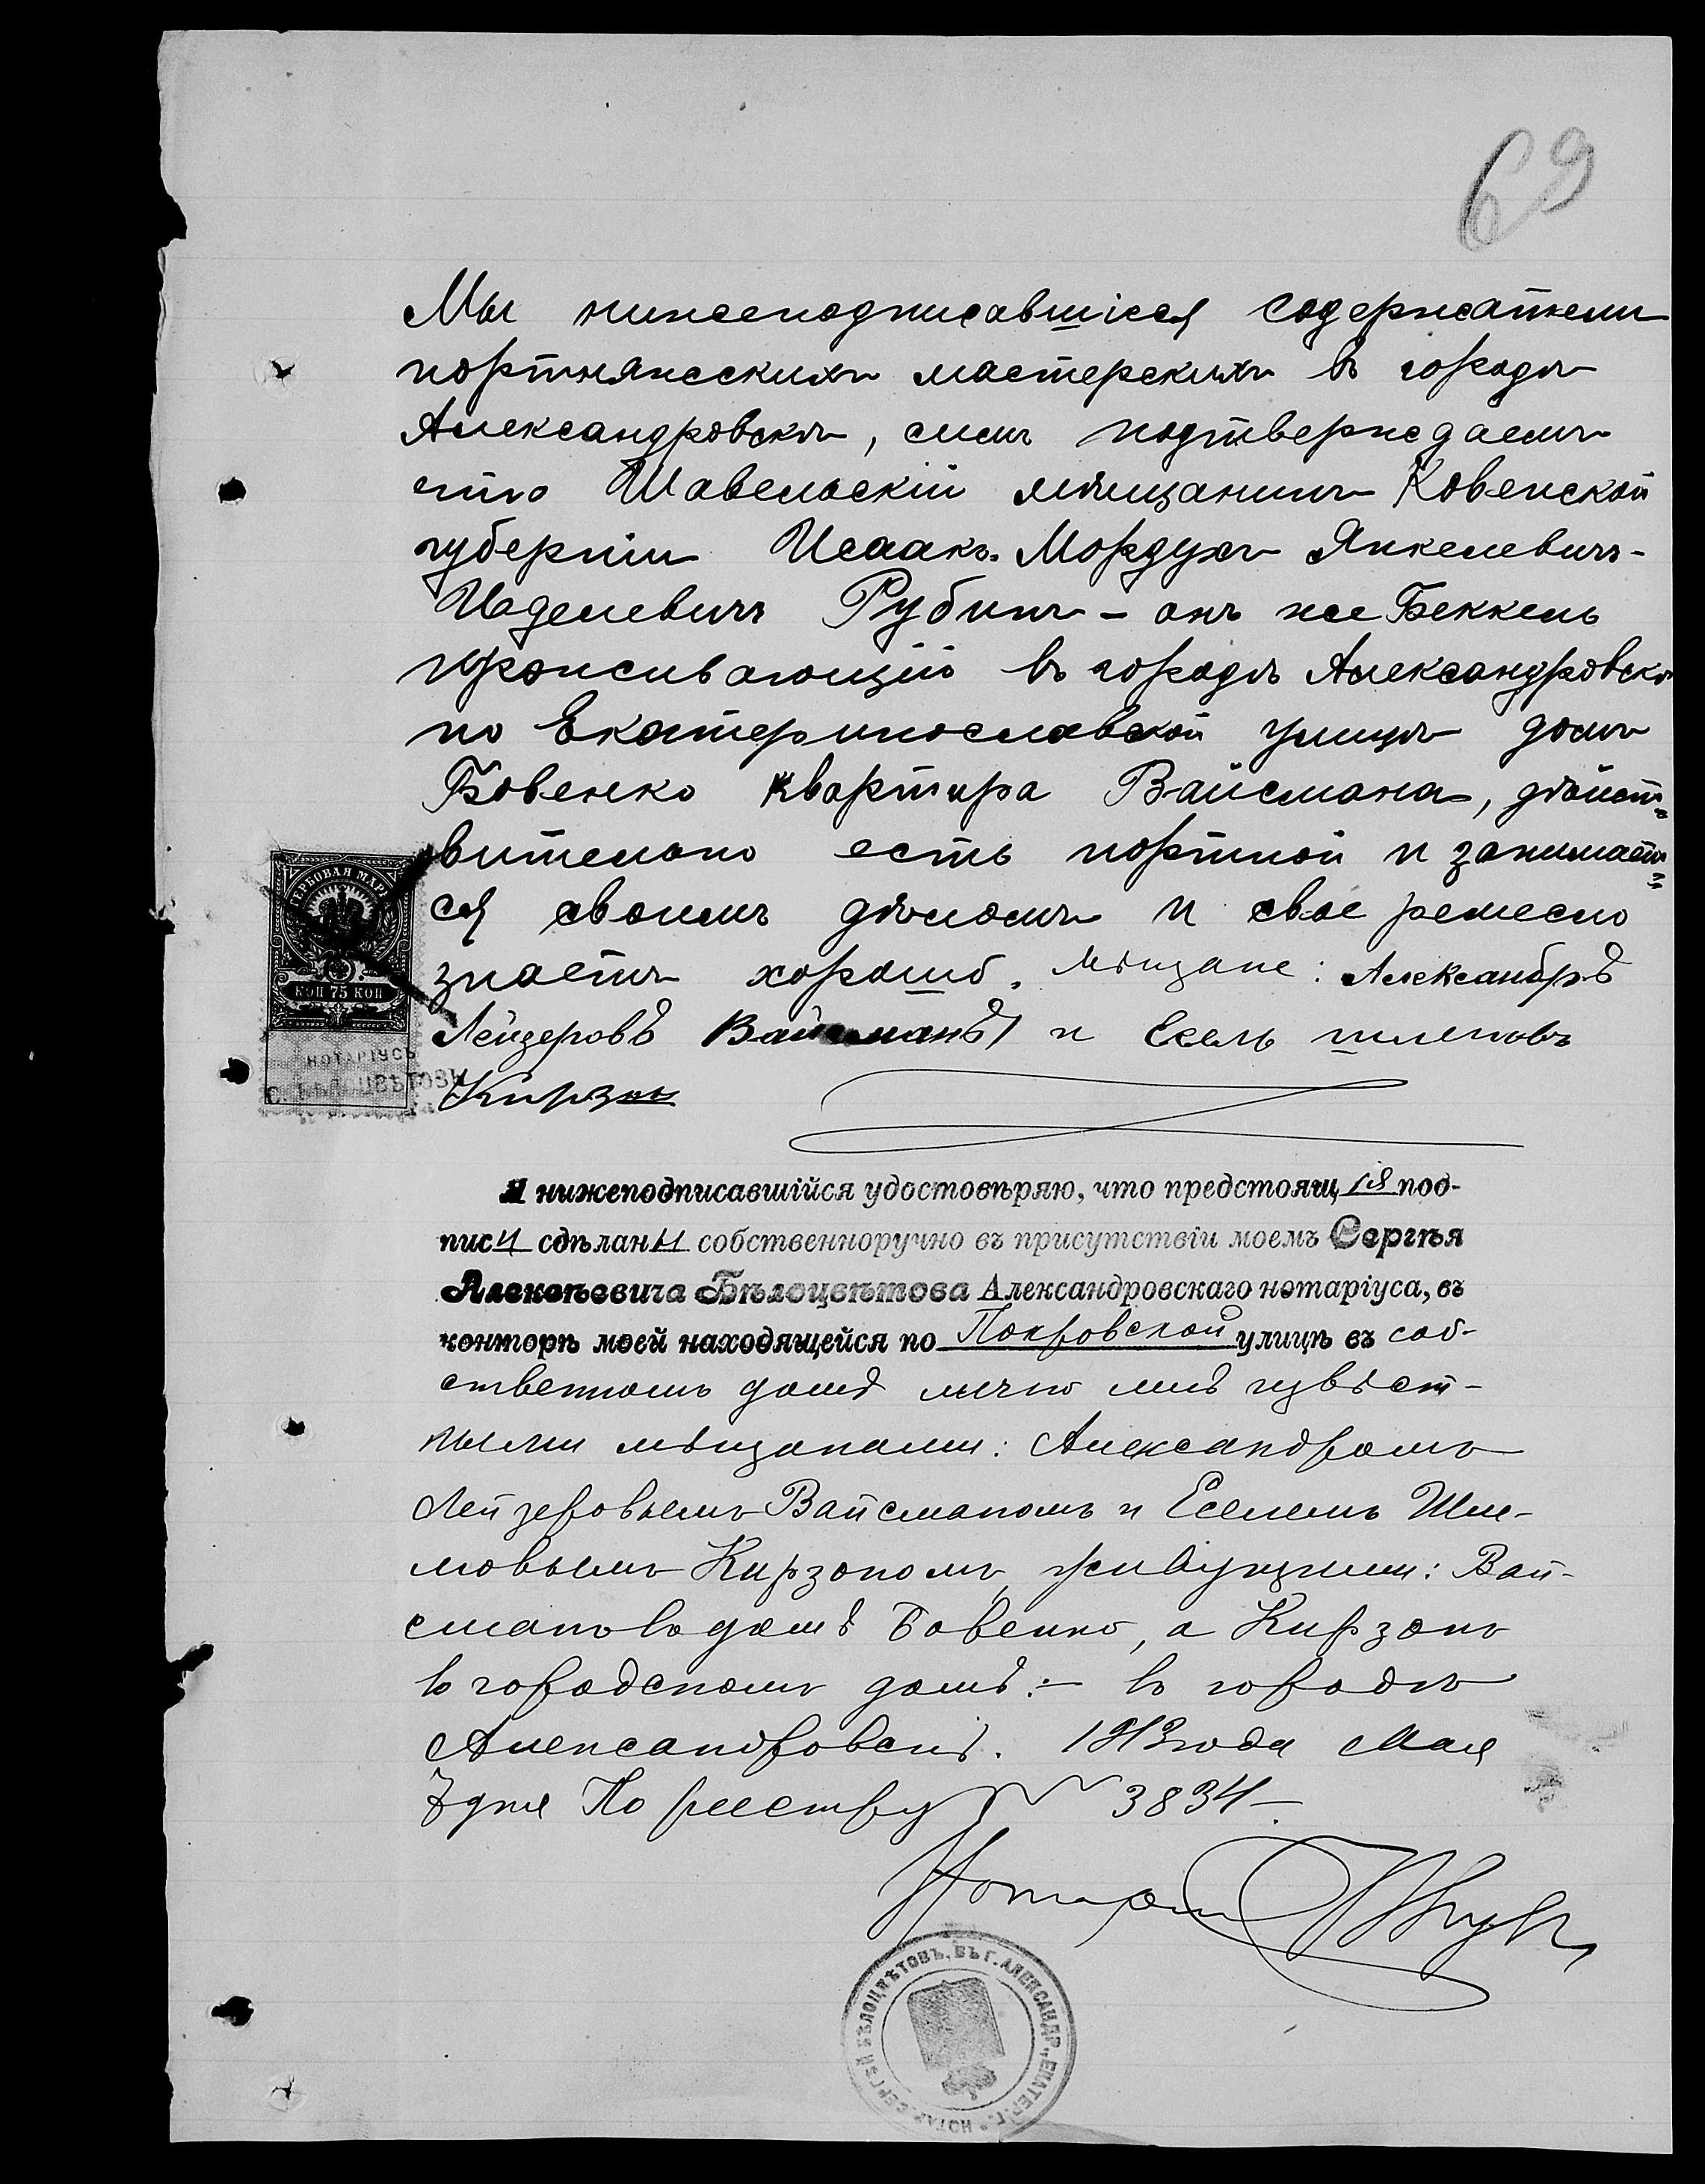 69
Мы нижеподписавшіеся содержатели
портняжескихъ мастерскихъ въ городѣ
Александровскѣ, симъ подтверждаемъ
что Шавельскій мѣщанинъ Ковенской
губерніи Исаакъ-Мордухъ Янкелевичъ-
Иделевичъ Рубинъ - онъ же Беккель
проживающій въ городѣ Александровскѣ
по Екатеринославской улицѣ домъ
Бовенко квартира Вайсмана, дѣйст=
вительно есть портной и занимает=
ся своимъ дѣломъ и свое ремесло
знаетъ хорошо. Мѣщане: Александръ
Лейзеровъ Вайсманъ и Есель Шлемовъ
Кирзон
ГЕРБОВАЯ МАРКА
КОП 75 КОП
НОТАРІУСЪ
С. БѢЛОЦВѢТОВЪ
Я нижеподписавшійся удостовѣряю, что предстоящія под-
писи сдѣланы собственноручно въ присутствіи моемъ Сергѣя
Алексѣевича Бѣлоцвѣтова Александровскаго нотаріуса, въ
конторѣ моей находящейся по Покровской улицѣ въ соб-
ственномъ домѣ лично мнѣ извѣст-
ными мѣщанами: Александромъ
Лейзеровымъ Вайсманомъ и Еселемъ Шле-
мовымъ Кирзономъ, живущими: Вай-
сманъ въ домѣ Бовенко, а Кирзонъ
въ городскомъ домѣ:- въ городѣ
Александровскѣ. 1913 года Мая
7 дня По реестру № 3834
Нотаріусъ
НОТАР. СЕРГѢЙ БѢЛОЦВѢТОВЪ, ВЪ Г. АЛЕКСАНДР., ЕКАТЕР. Г.